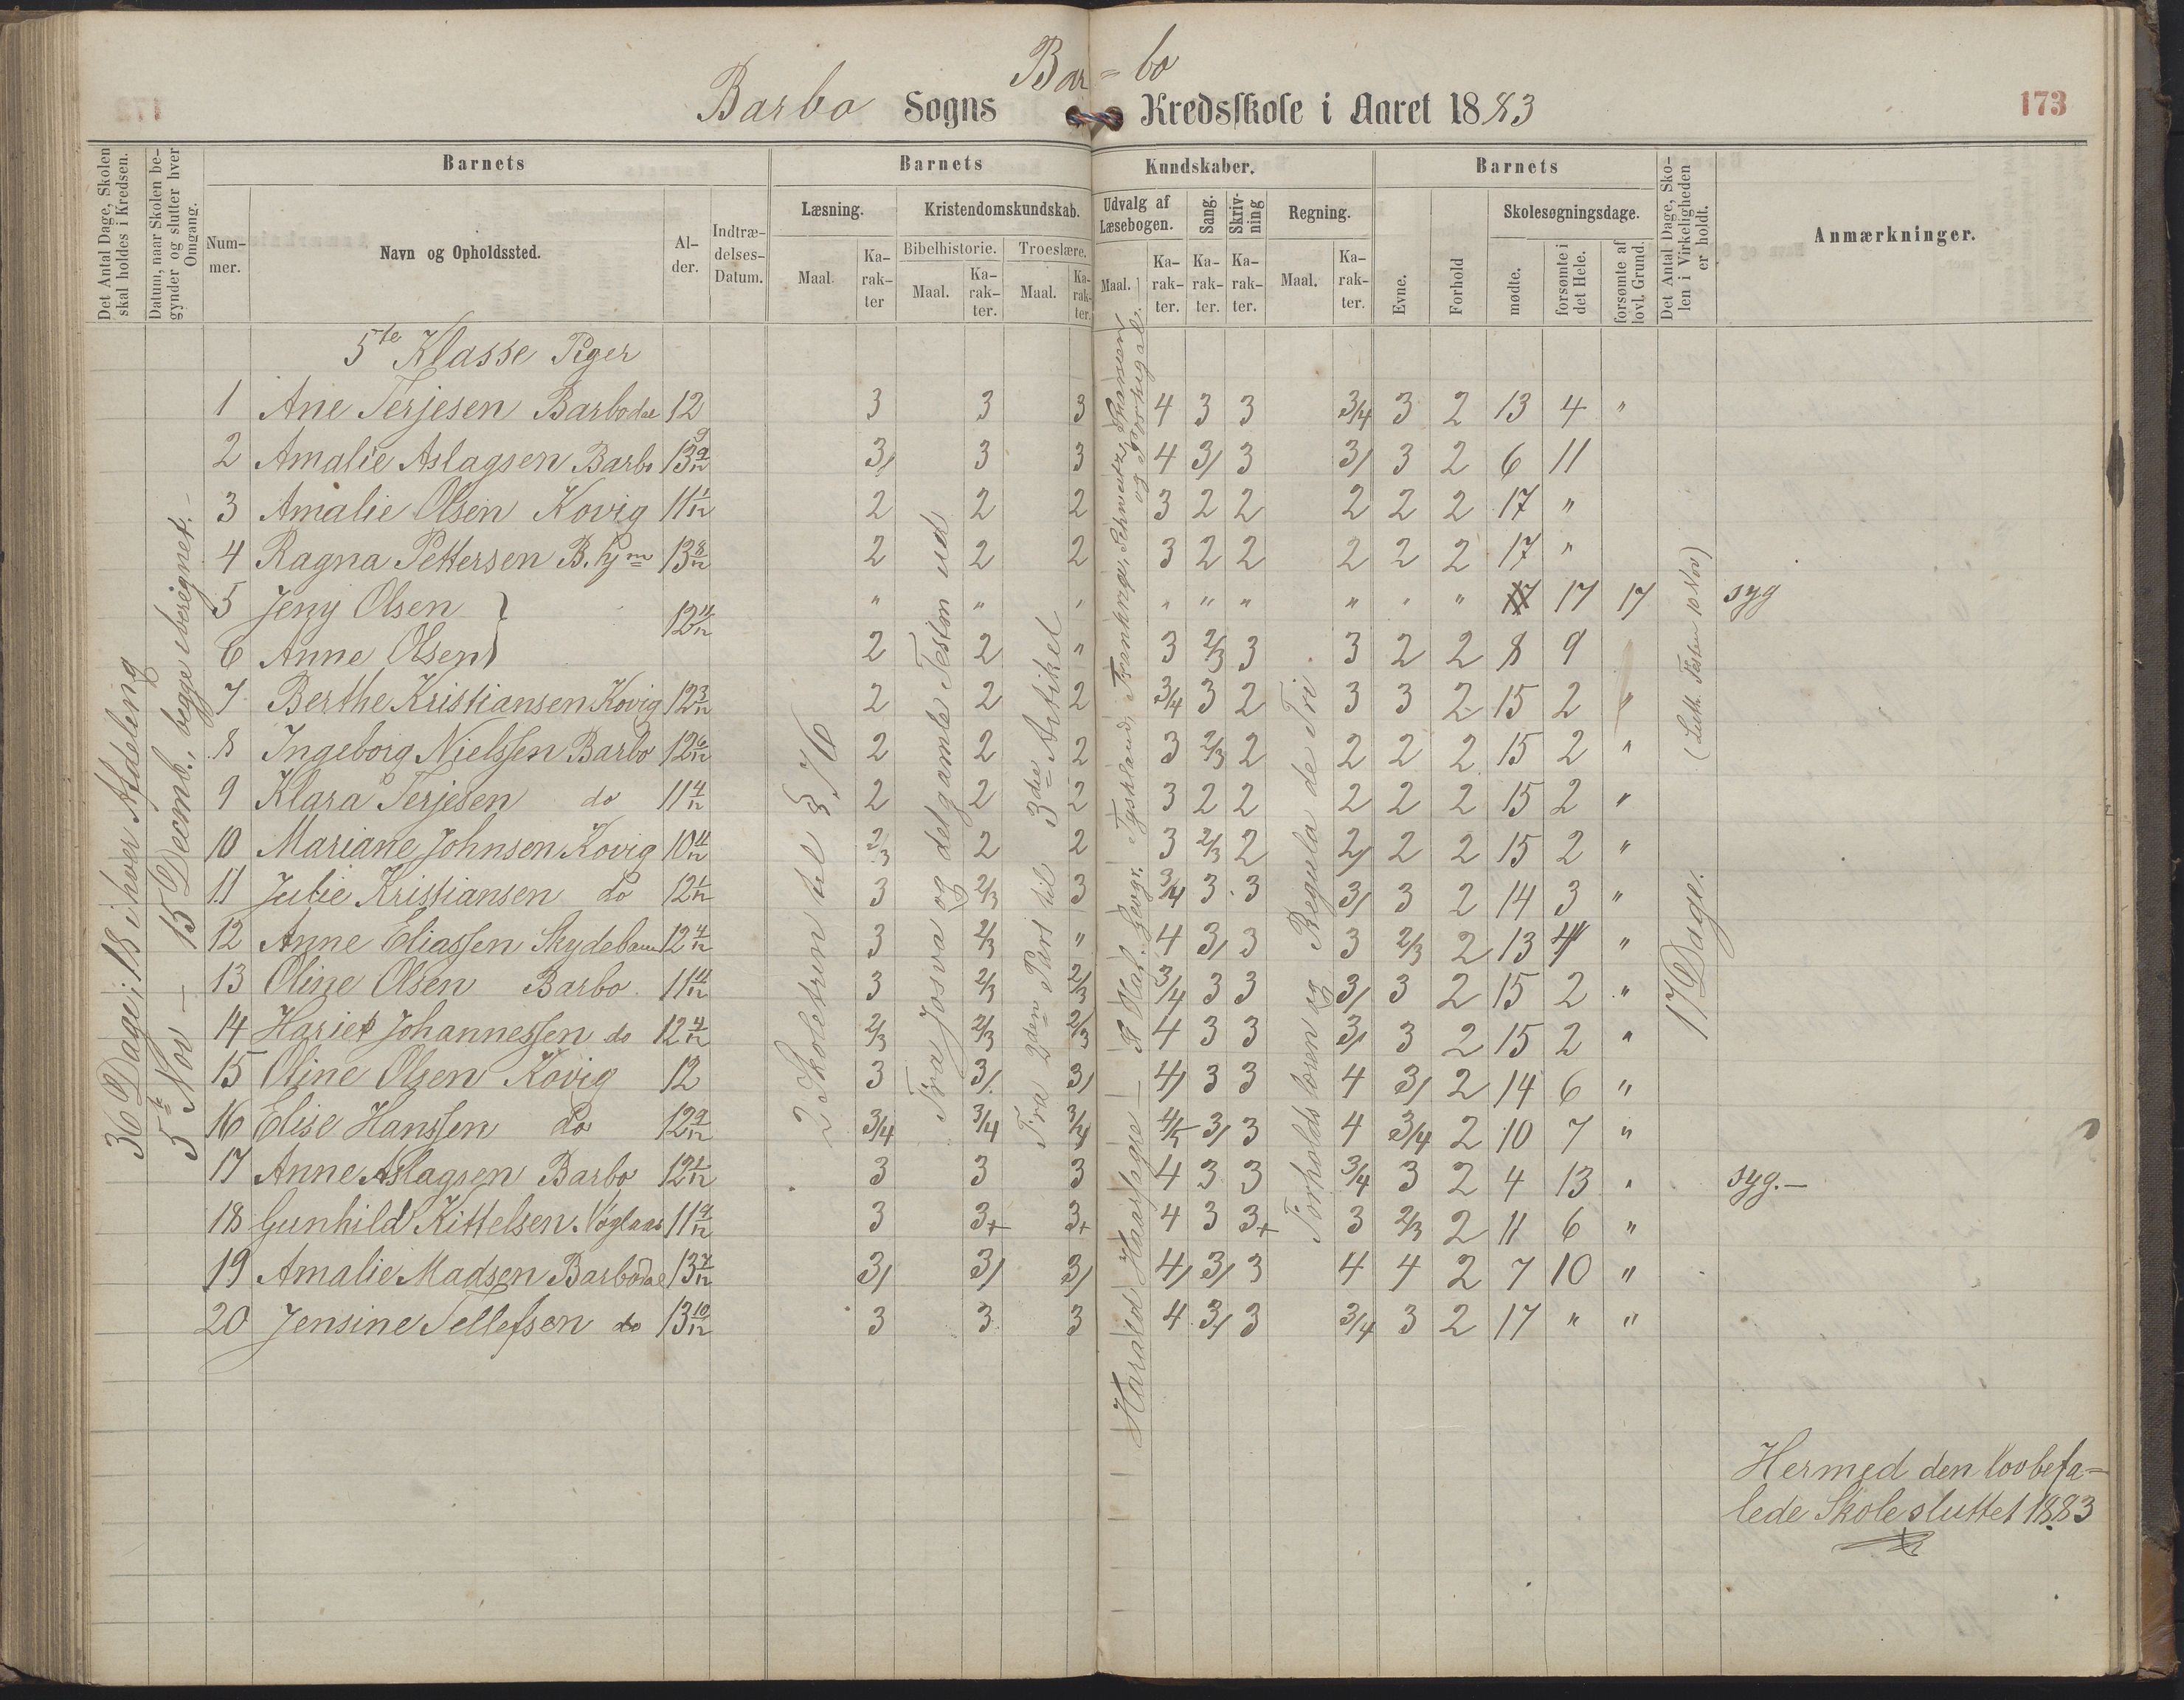 Bar = bo
Barbo Sogns Kredsskole i Aaret 1883
173
Det Antal Dage, Skolen skal holdes i Kredsen.
Datum, naar Skolen begynder og slutter hver Omgang.
Barnets
Barnets
Kundskaber.
Barnets
Det Antal Dage, Skolen i Virkeligheden er holdt.
Anmærkninger.
Nummer.
Navn og Opholdssted.
Alder.
Indtrædelses-Datum.
Læsning.
Kristendomskundskab.
Udvalg af Læsebogen.
Sang.
Skrivning
Regning.
Evne.
Forhold
Skolesøgningsdage.
Bibelhistorie.
Troeslære.
Maal.
Karakter
Maal.
Karakter.
Maal.
Karakter.
Maal.
Karakter.
Karakter.
Karakter.
Maal.
Karakter.
mødte.
forsømte i det Hele.
forsømte af lovl. Grund.
36 Dage; 18 i hver Afdeling
5te Nov — 15 Decmb., begge iberegnet.
2 Skoletrin til § 76
Fra Josva og det gamle Testm ud
Fra 2den Part til 3die Artikel
Harald Haarfagre — H Geogr. Tyskland, Frankrige, Schweitz, Spanien og Portugal.
Forholdslæren og Regula de Tri
17 Dage. (Luth. Festen 10 Nov)
5te Klasse Piger
1 Ane Terjesen Barbodal 12 3 3 3 4 3 3 3/4 3 2 13 4 "
2 Amalie Aslagsen Barbo 13 9/12 3/ 3 3 4 3/ 3 3/ 3 2 6 11
3 Amalie Olsen Kovig 11 1/12 2 2 2 3 2 2 2 2 2 17 "
4 Ragna Pettersen B. 13 8/12 2 2 2 3 2 2 2 2 2 17 "
5 Jeny Olsen " " " " " " " " " 17 17 syg
6 Anne Olsen 12 11/12 2 2 " 3 2/3 3 3 2 2 8 9
7 Berthe Kristiansen Kovig 12 3/12 2 2 2 3/4 3 2 3 3 2 15 2 "
8 Ingeborg Nielssen Barbo 12 6/12 2 2 2 3 2/3 2 2 2 2 15 2 "
9 Klara Terjesen do 11 4/12 2 2 2 3 2 2 2 2 2 15 2 "
10 Mariane Johnsen Kovig 10 11/12 2/3 2 2 3 2/3 2 2/ 2 2 15 2 "
11 Julie Kristiansen do 12 1/12 3 2/3 3 3/4 3 3 3/ 3 2 14 3 "
12 Anne Eliassen 12 4/12 3 2/3 " 4 3/ 3 3 2/3 2 13 4 "
13 Oline Olsen Barbo 11 11/12 3 2/3 2/3 3/4 3 3 3/ 3 2 15 2 "
14 Hariet Johannessen do 12 4/12 2/3 2/3 2/3 4 3 3 3/ 3 2 15 2 "
15 Oline Olsen Kovig 12 3 3/ 3/ 4/ 3 3 4 3/ 2 14 6 "
16 Elise Hanssen do 12 9/12 3/4 3/4 3/4 4/5 3/ 3 4 3/4 2 10 7 "
17 Anne Aslagsen Barbo 12 1/12 3 3 3 4 3 3 3/4 3 2 4 13 " syg.—
18 Gunhild Kittelsen 11 9/12 3 3+ 3+ 4 3 3+ 3 2/3 2 11 6 "
19 Amalie Madsen Barbodal 13 7/12 3/ 3/ 3/ 4/ 3/ 3 4 4 2 7 10 "
20 Jensine Tellefsen do 13 10/12 3 3 3 4 3/ 3 3/4 3 2 17 " "
Hermed den lovbefa=
lede Skole sluttet 1883